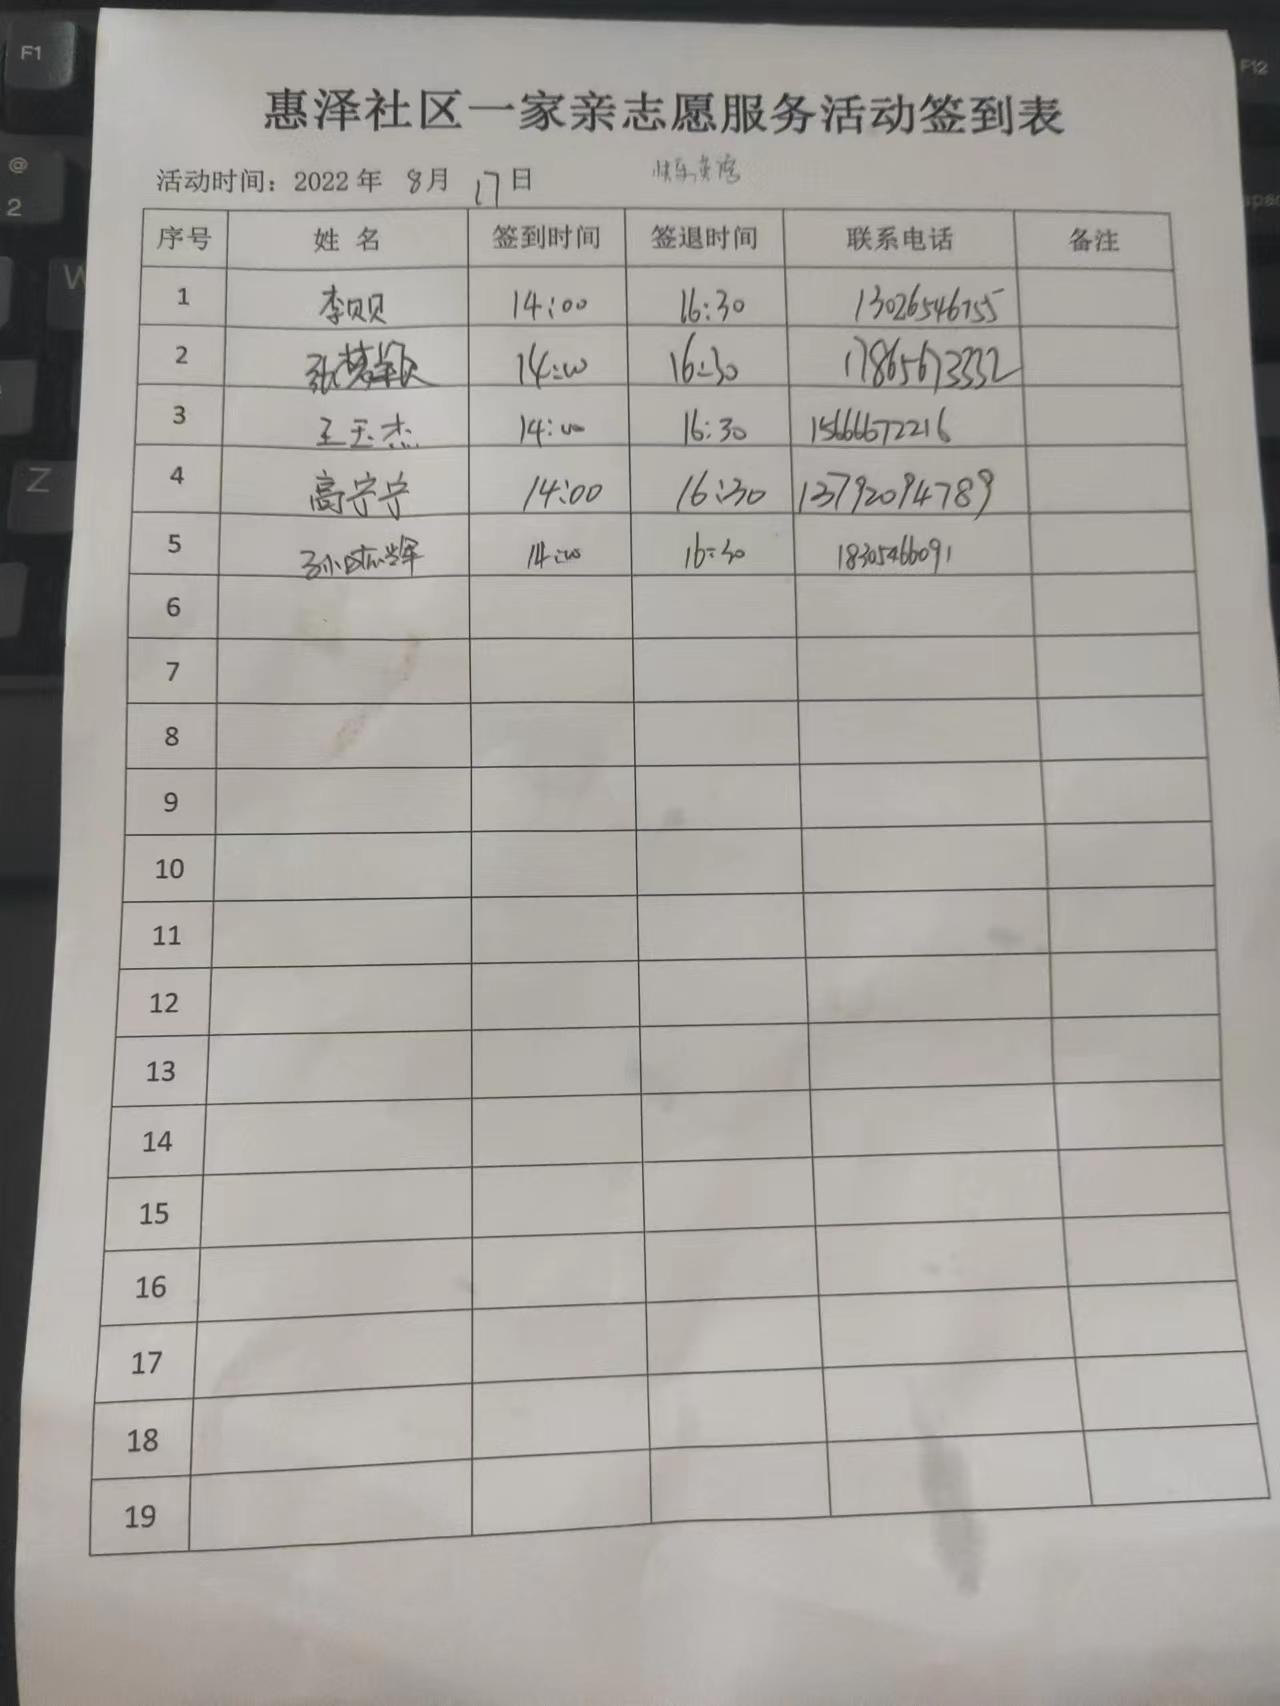 惠泽社区一家亲志愿服务活动签到表
活动时间：2022年 8月 17日
序号 姓名 签到时间 签退时间 联系电话 备注
1 李贝贝 14:00 16:30 13026546755
2 14:00 16:30 17865673332
3 王玉杰 14:00 16:30 15666672216
4 高宁宁 14:00 16:30 13792094789
5 14:00 16:30 18305466091
6
7
8
9
10
11
12
13
14
15
16
17
18
19
F1
@
2
W
Z
F12